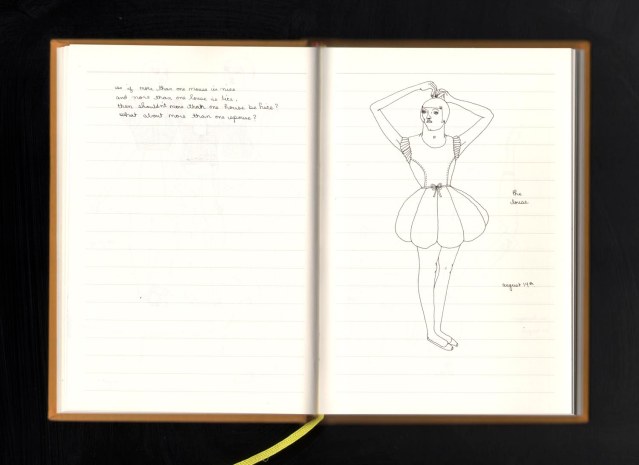 so if more than one mouse is mice
and more than one louse is lice,
then shouldn't more than one house be hice?
what about more than one spouse?
the
august 14th